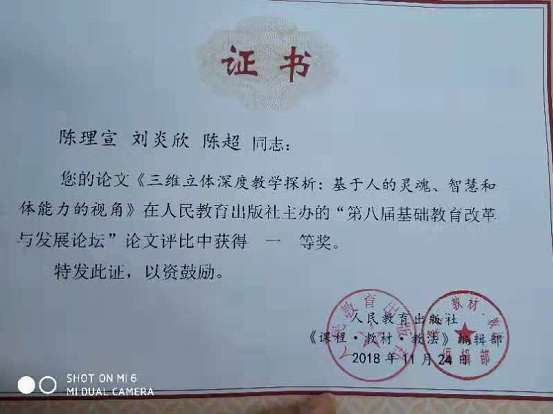 证书
陈理宣 刘炎欣 陈超 同志：
您的论文《三维立体深度教学探析：基于人的灵魂、智慧和
体能力的视角》在人民教育出版社主办的“第八届基础教育改革
与发展论坛”论文评比中获得 一 等奖。
特发此证，以资鼓励。
人民教育出版社
《课程·教材·教法》编辑部
2018年11月24日
SHOT ON MI 6
MI DUAL CAMERA